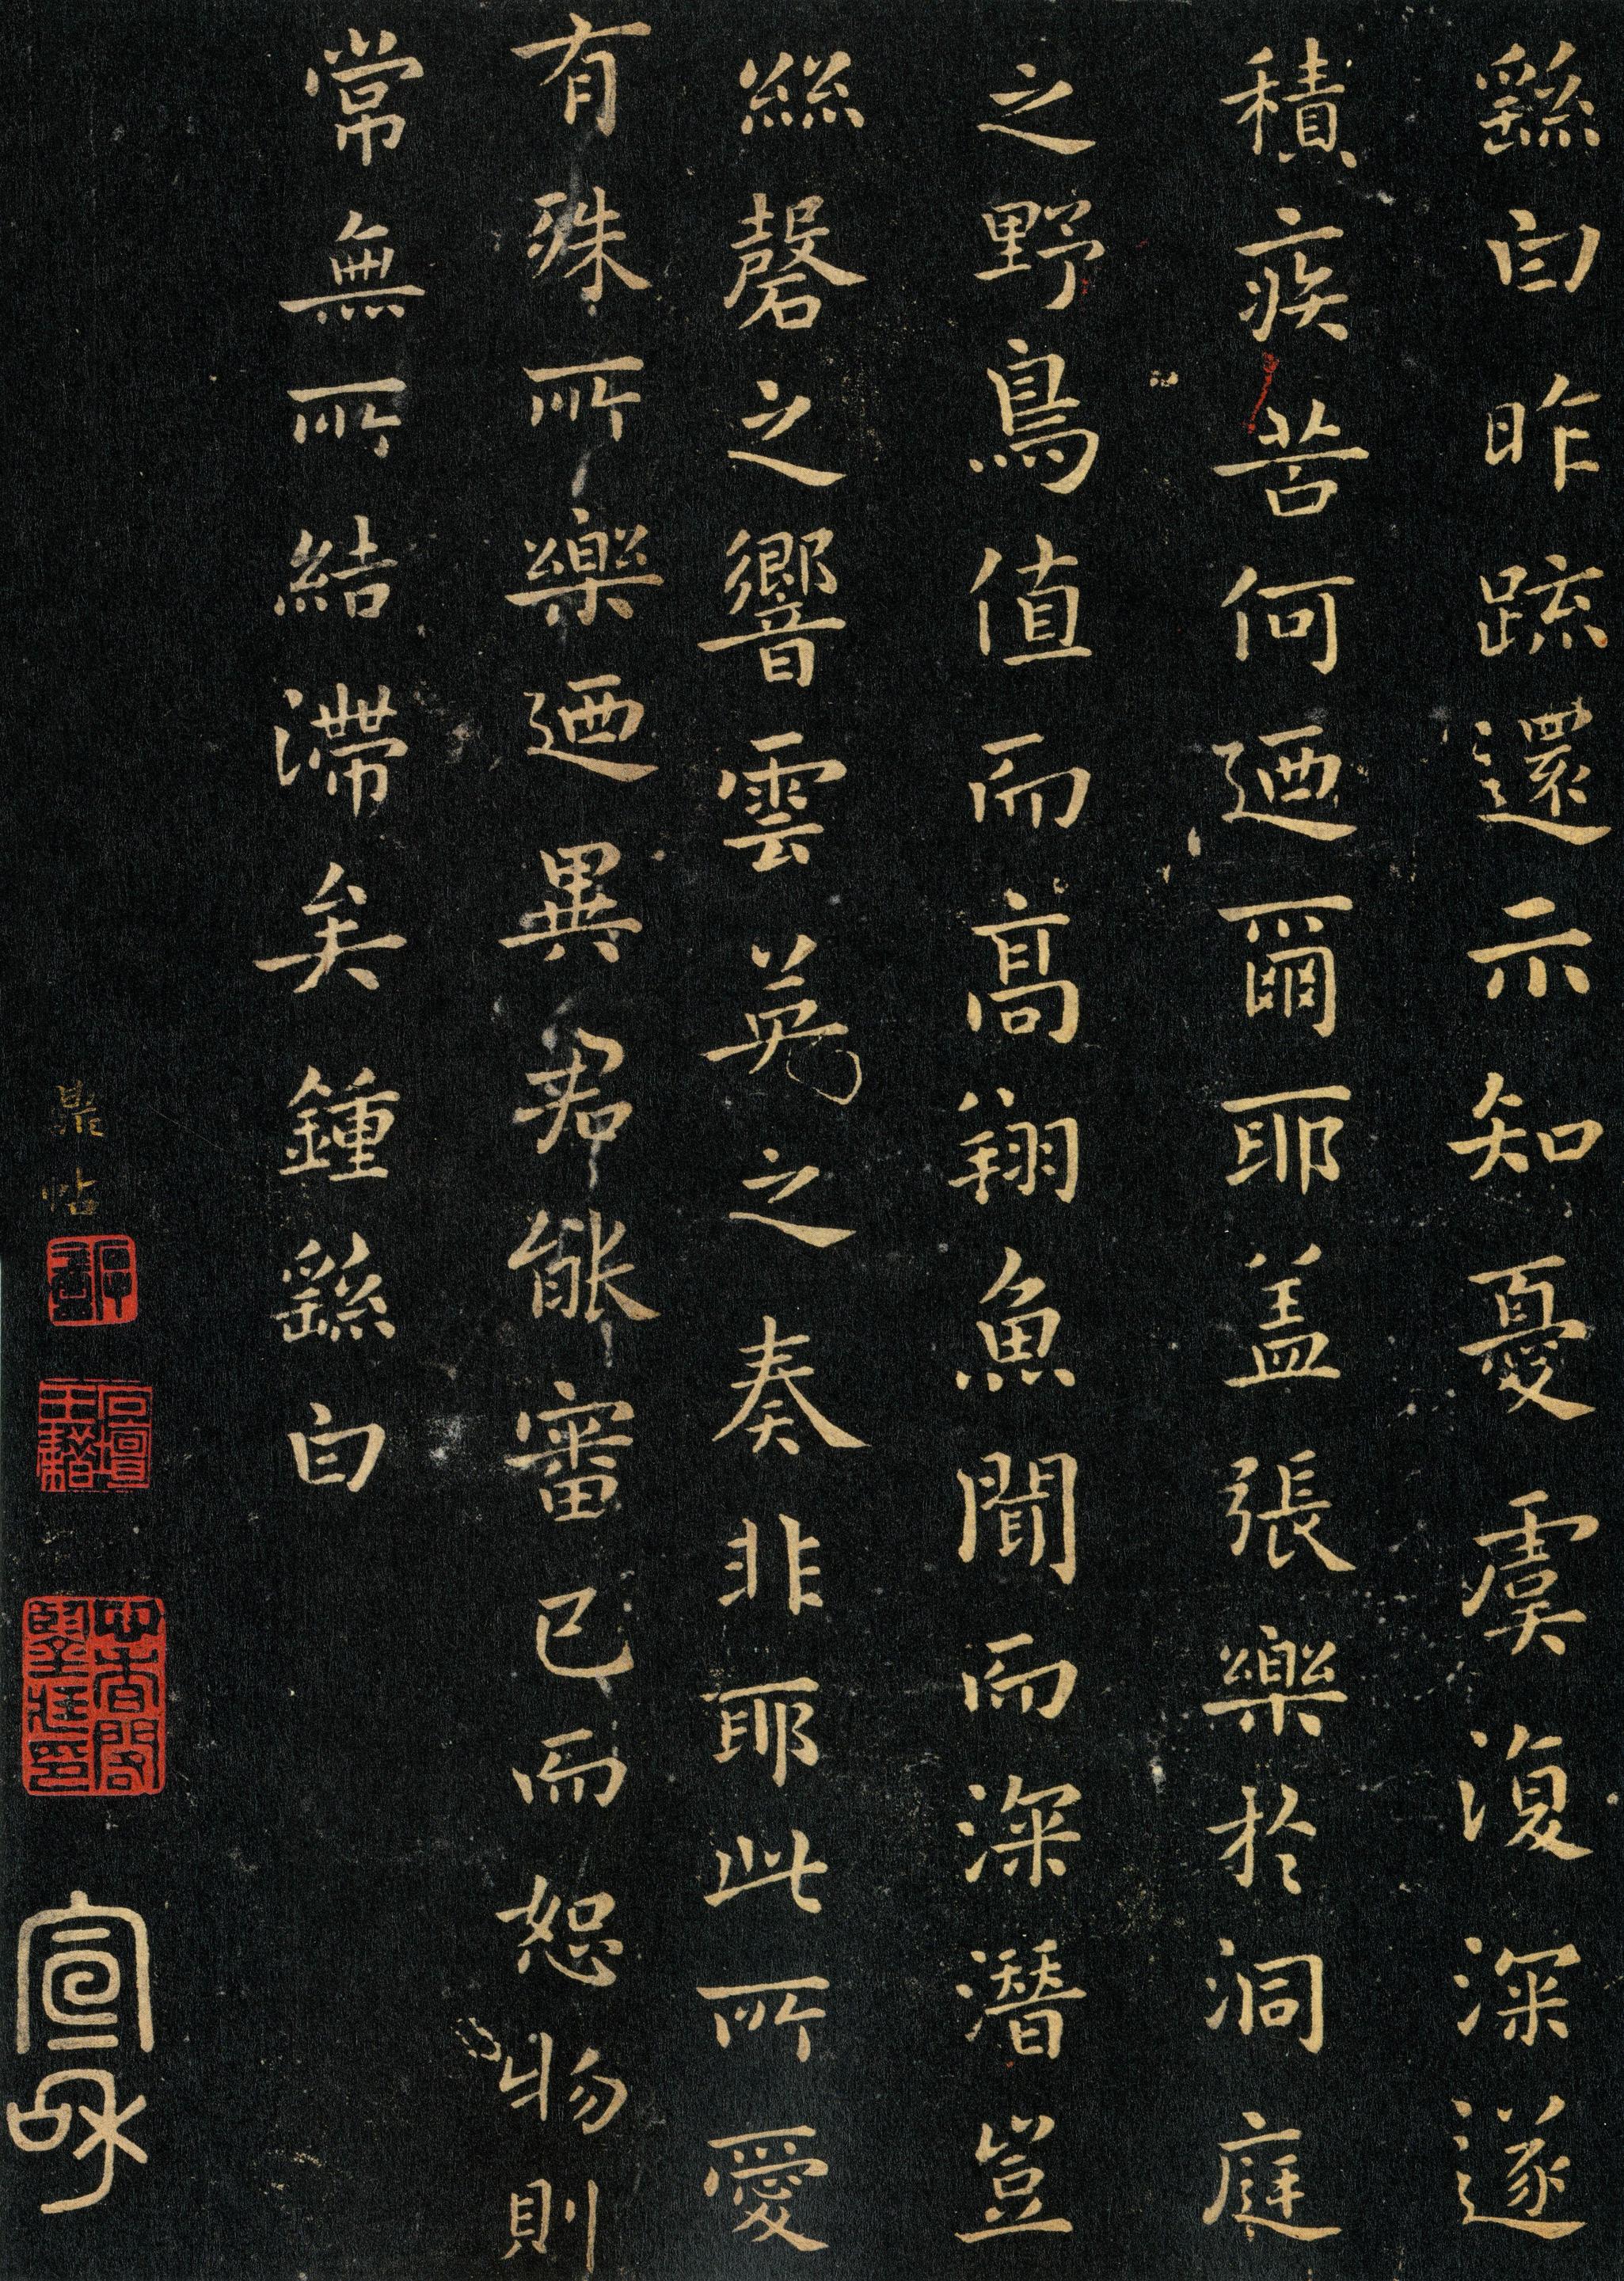 繇白昨疏還示知憂虞復深遂
積疾苦何迺爾耶盖張樂於洞庭
之野鳥值而高翔魚聞而深潛豈
絲磬之響雲英之奏非耶此所愛
有殊所樂迺異君能審己而恕物則
常無所結滯矣鍾繇白
鼎帖
宣和